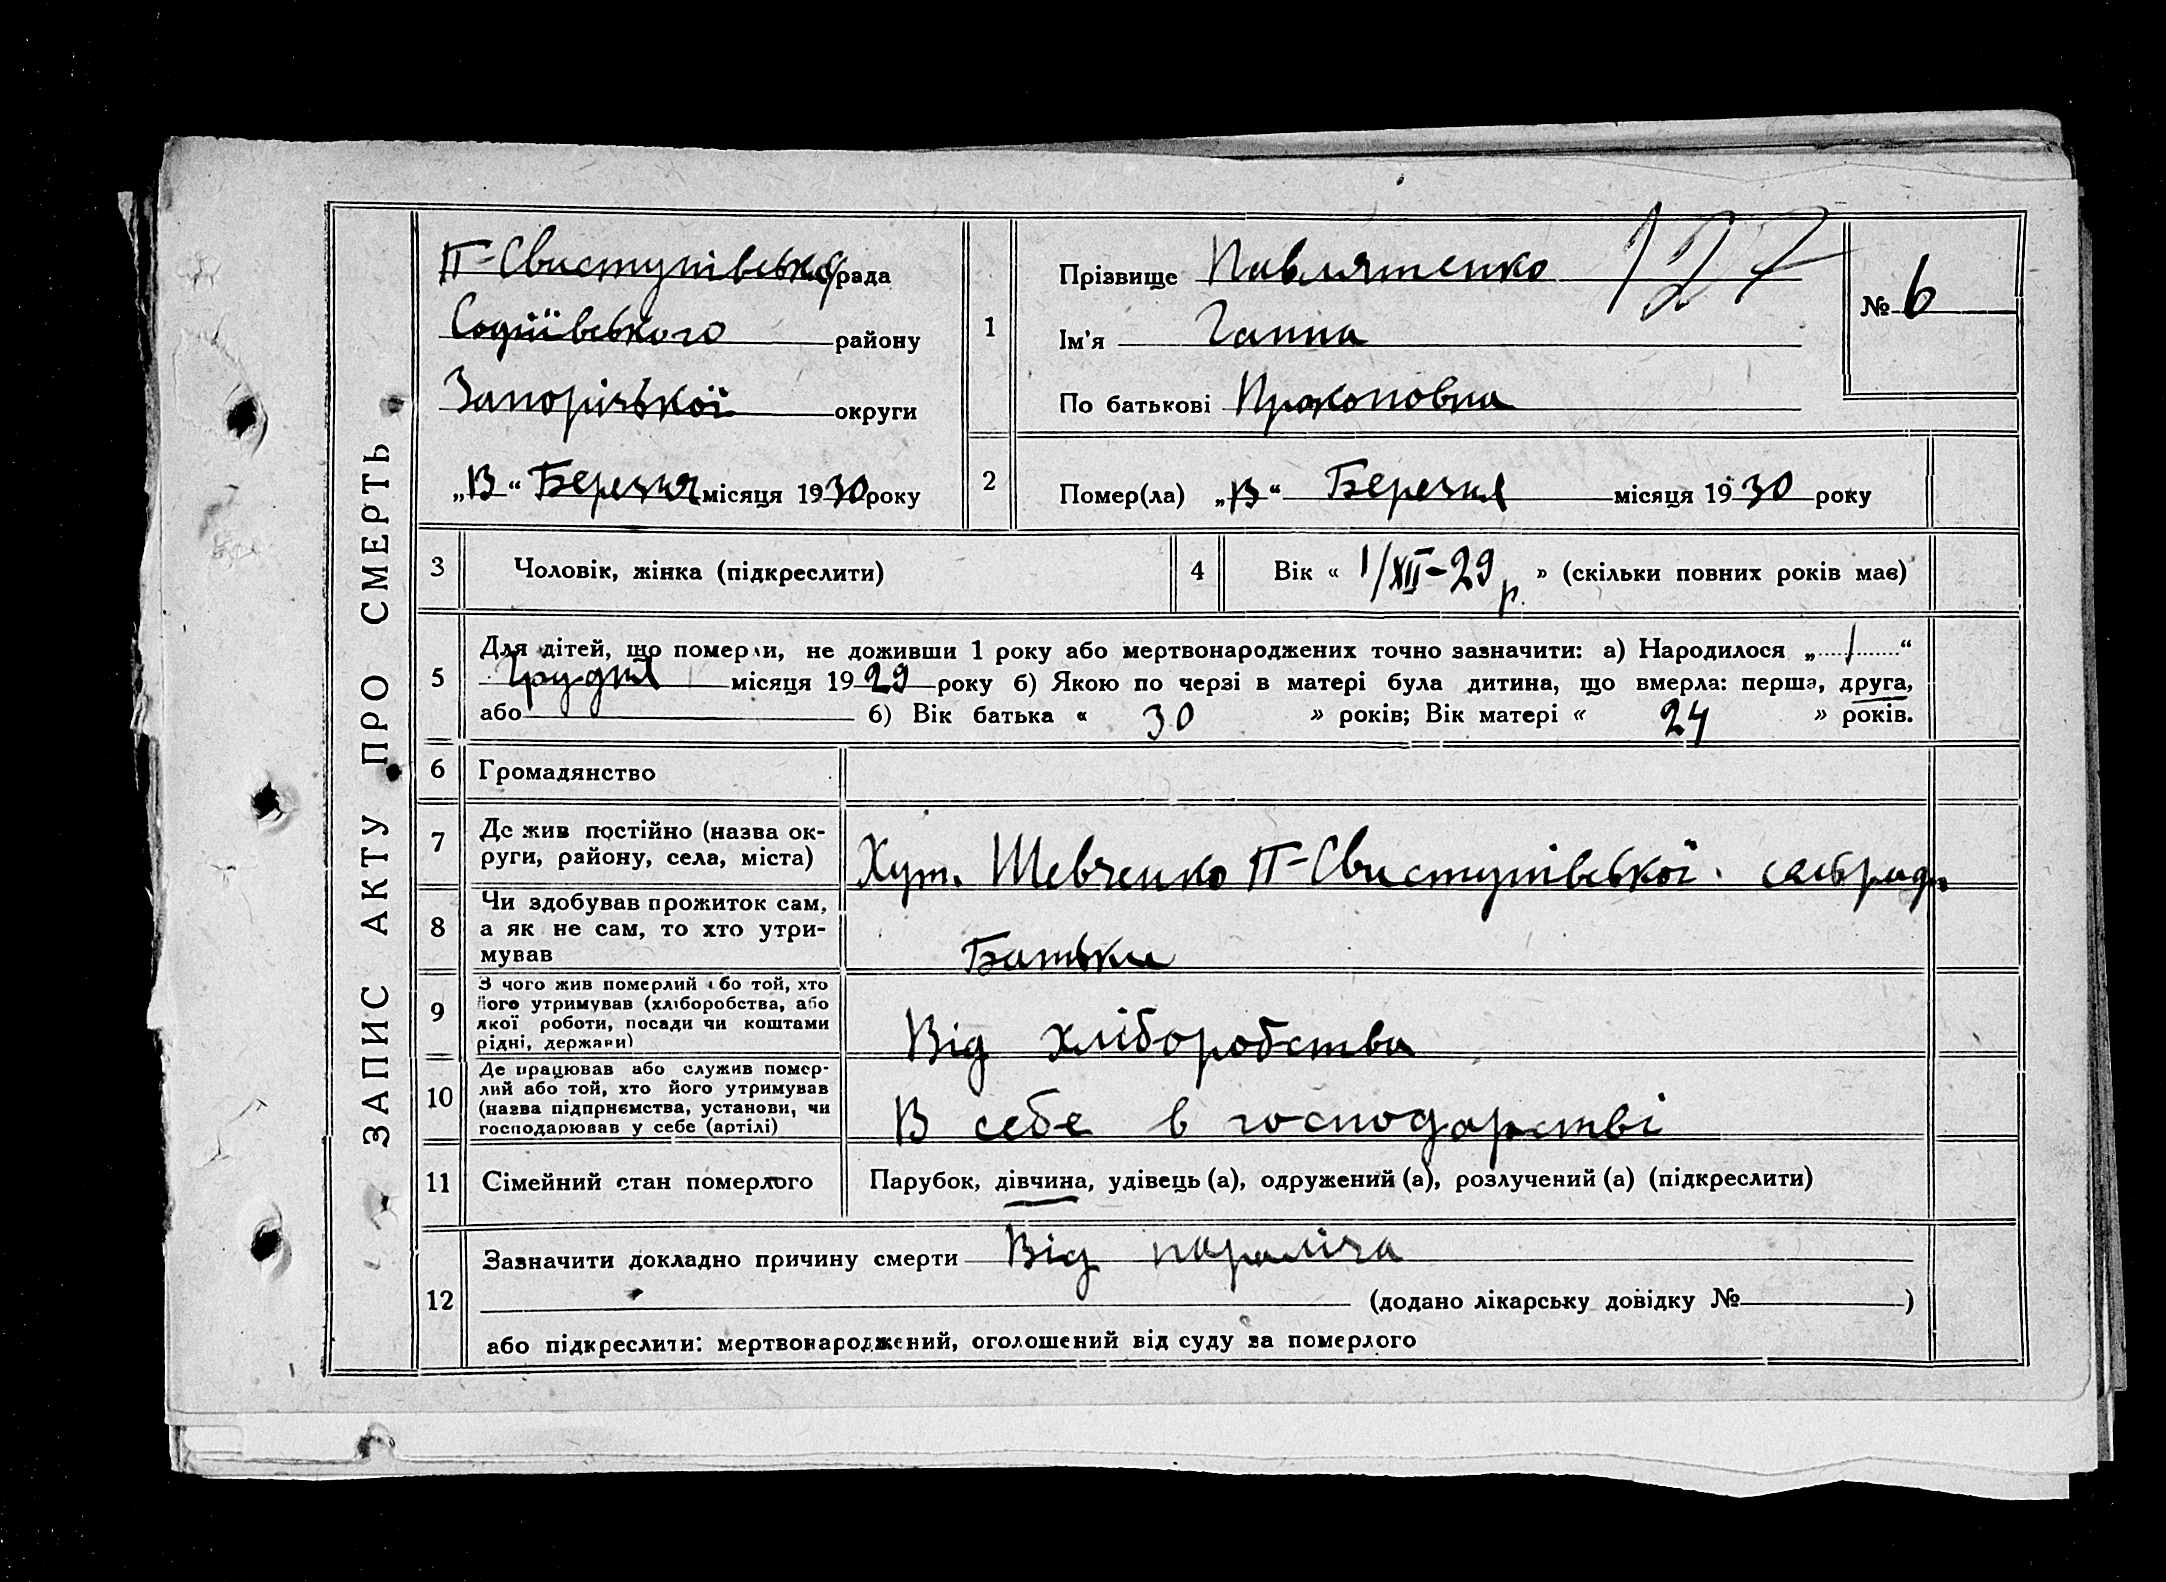 ЗАПИС АКТУ ПРО СМЕРТЬ
П-Свистунівська рада
Софіївського району
Запорізької округи
„13“ Березня місяця 1930 року
1
Прізвище Павлятенко
127
Ім'я Ганна
По батькові Прокоповна
№ 6
2
Помер(ла) „13“ Березня місяця 1930 року
3
Чоловік, жінка (підкреслити)
4
Вік « 1/XII-29 р. » (скільки повних років має)
5
Для дітей, що померли, не доживши 1 року або мертвонароджених точно зазначити: а) Народилося „ 1 “
Грудня місяця 1929 року б) Якою по черзі в матері була дитина, що вмерла: перша, друга,
або б) Вік батька « 30 » років; Вік матері « 24 » років.
6
Громадянство
7
Де жив постійно (назва ок-
руги, району, села, міста)
Хут. Шевченко П-Свистунівської сельради
8
Чи здобував прожиток сам,
а як не сам, то хто утри-
мував
Батьки
9
З чого жив померлий або той, хто
його утримував (хліборобства, або
якої роботи, посади чи коштами
рідні, держави)
Від хліборобства
10
Де працював або служив помер-
лий або той, хто його утримував
(назва підприємства, установи, чи
господарював у себе (артілі)
В себе в господарстві
11
Сімейний стан померлого
Парубок, дівчина, удівець (а), одружений (а), розлучений (а) (підкреслити)
12
Зазначити докладно причину смерти Від параліча
(додано лікарську довідку № )
або підкреслити: мертвонароджений, оголошений від суду за померлого